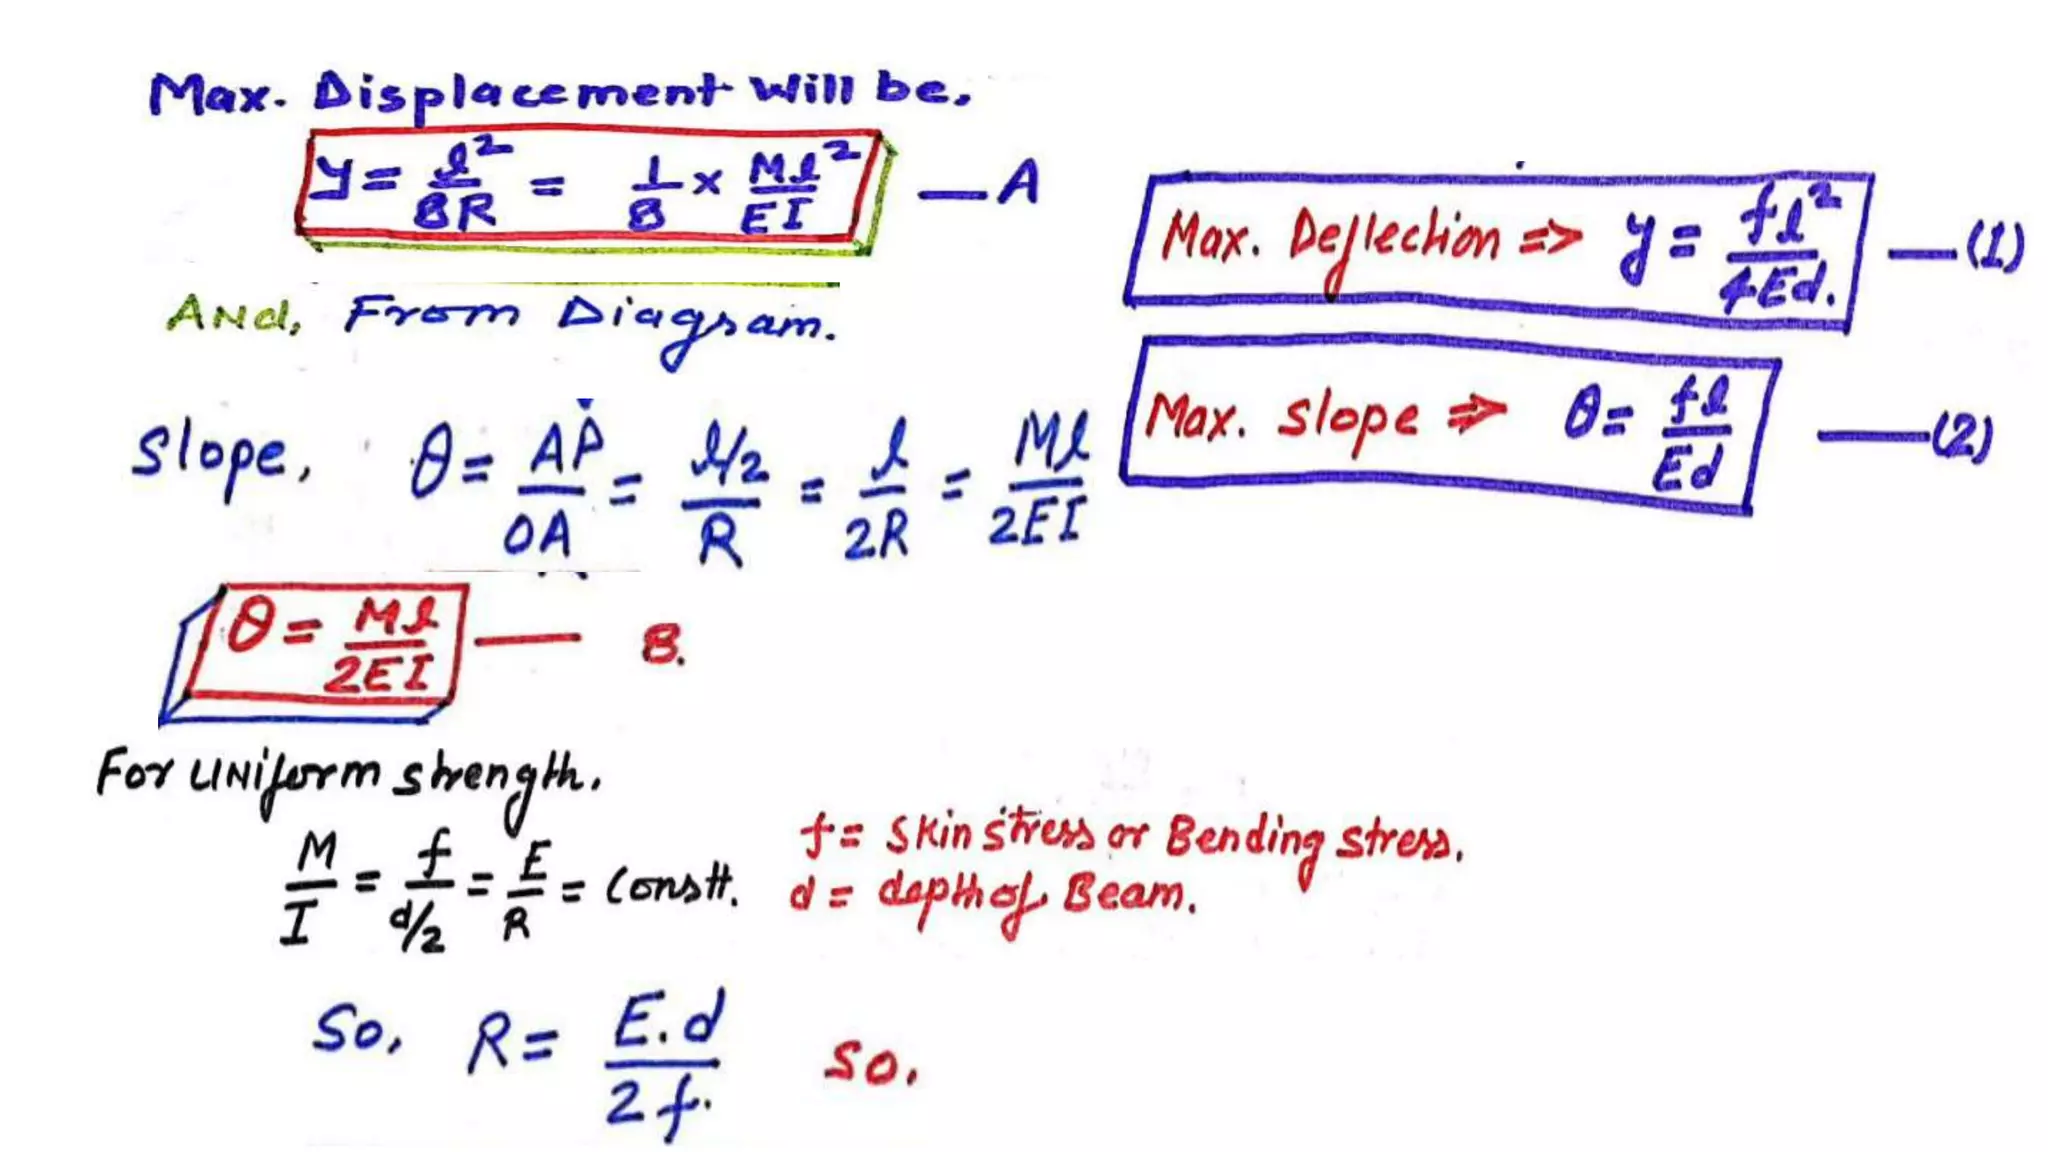 Max. Displacement will be,
y = l²/8R = 1/8 × Ml²/EI — A
And, From Diagram.
Slope, θ = AP/OA = l/2/R = l/2R = Ml/2EI
θ = Ml/2EI — B.
For UNiform strength,
M/I = f/d/2 = E/R = Constt.
f = Skin stress or Bending stress.
d = depth of Beam.
So, R = E.d/2f. So,
Max. Deflection => y = fl²/4Ed. — (1)
Max. slope => θ = fl/Ed — (2)